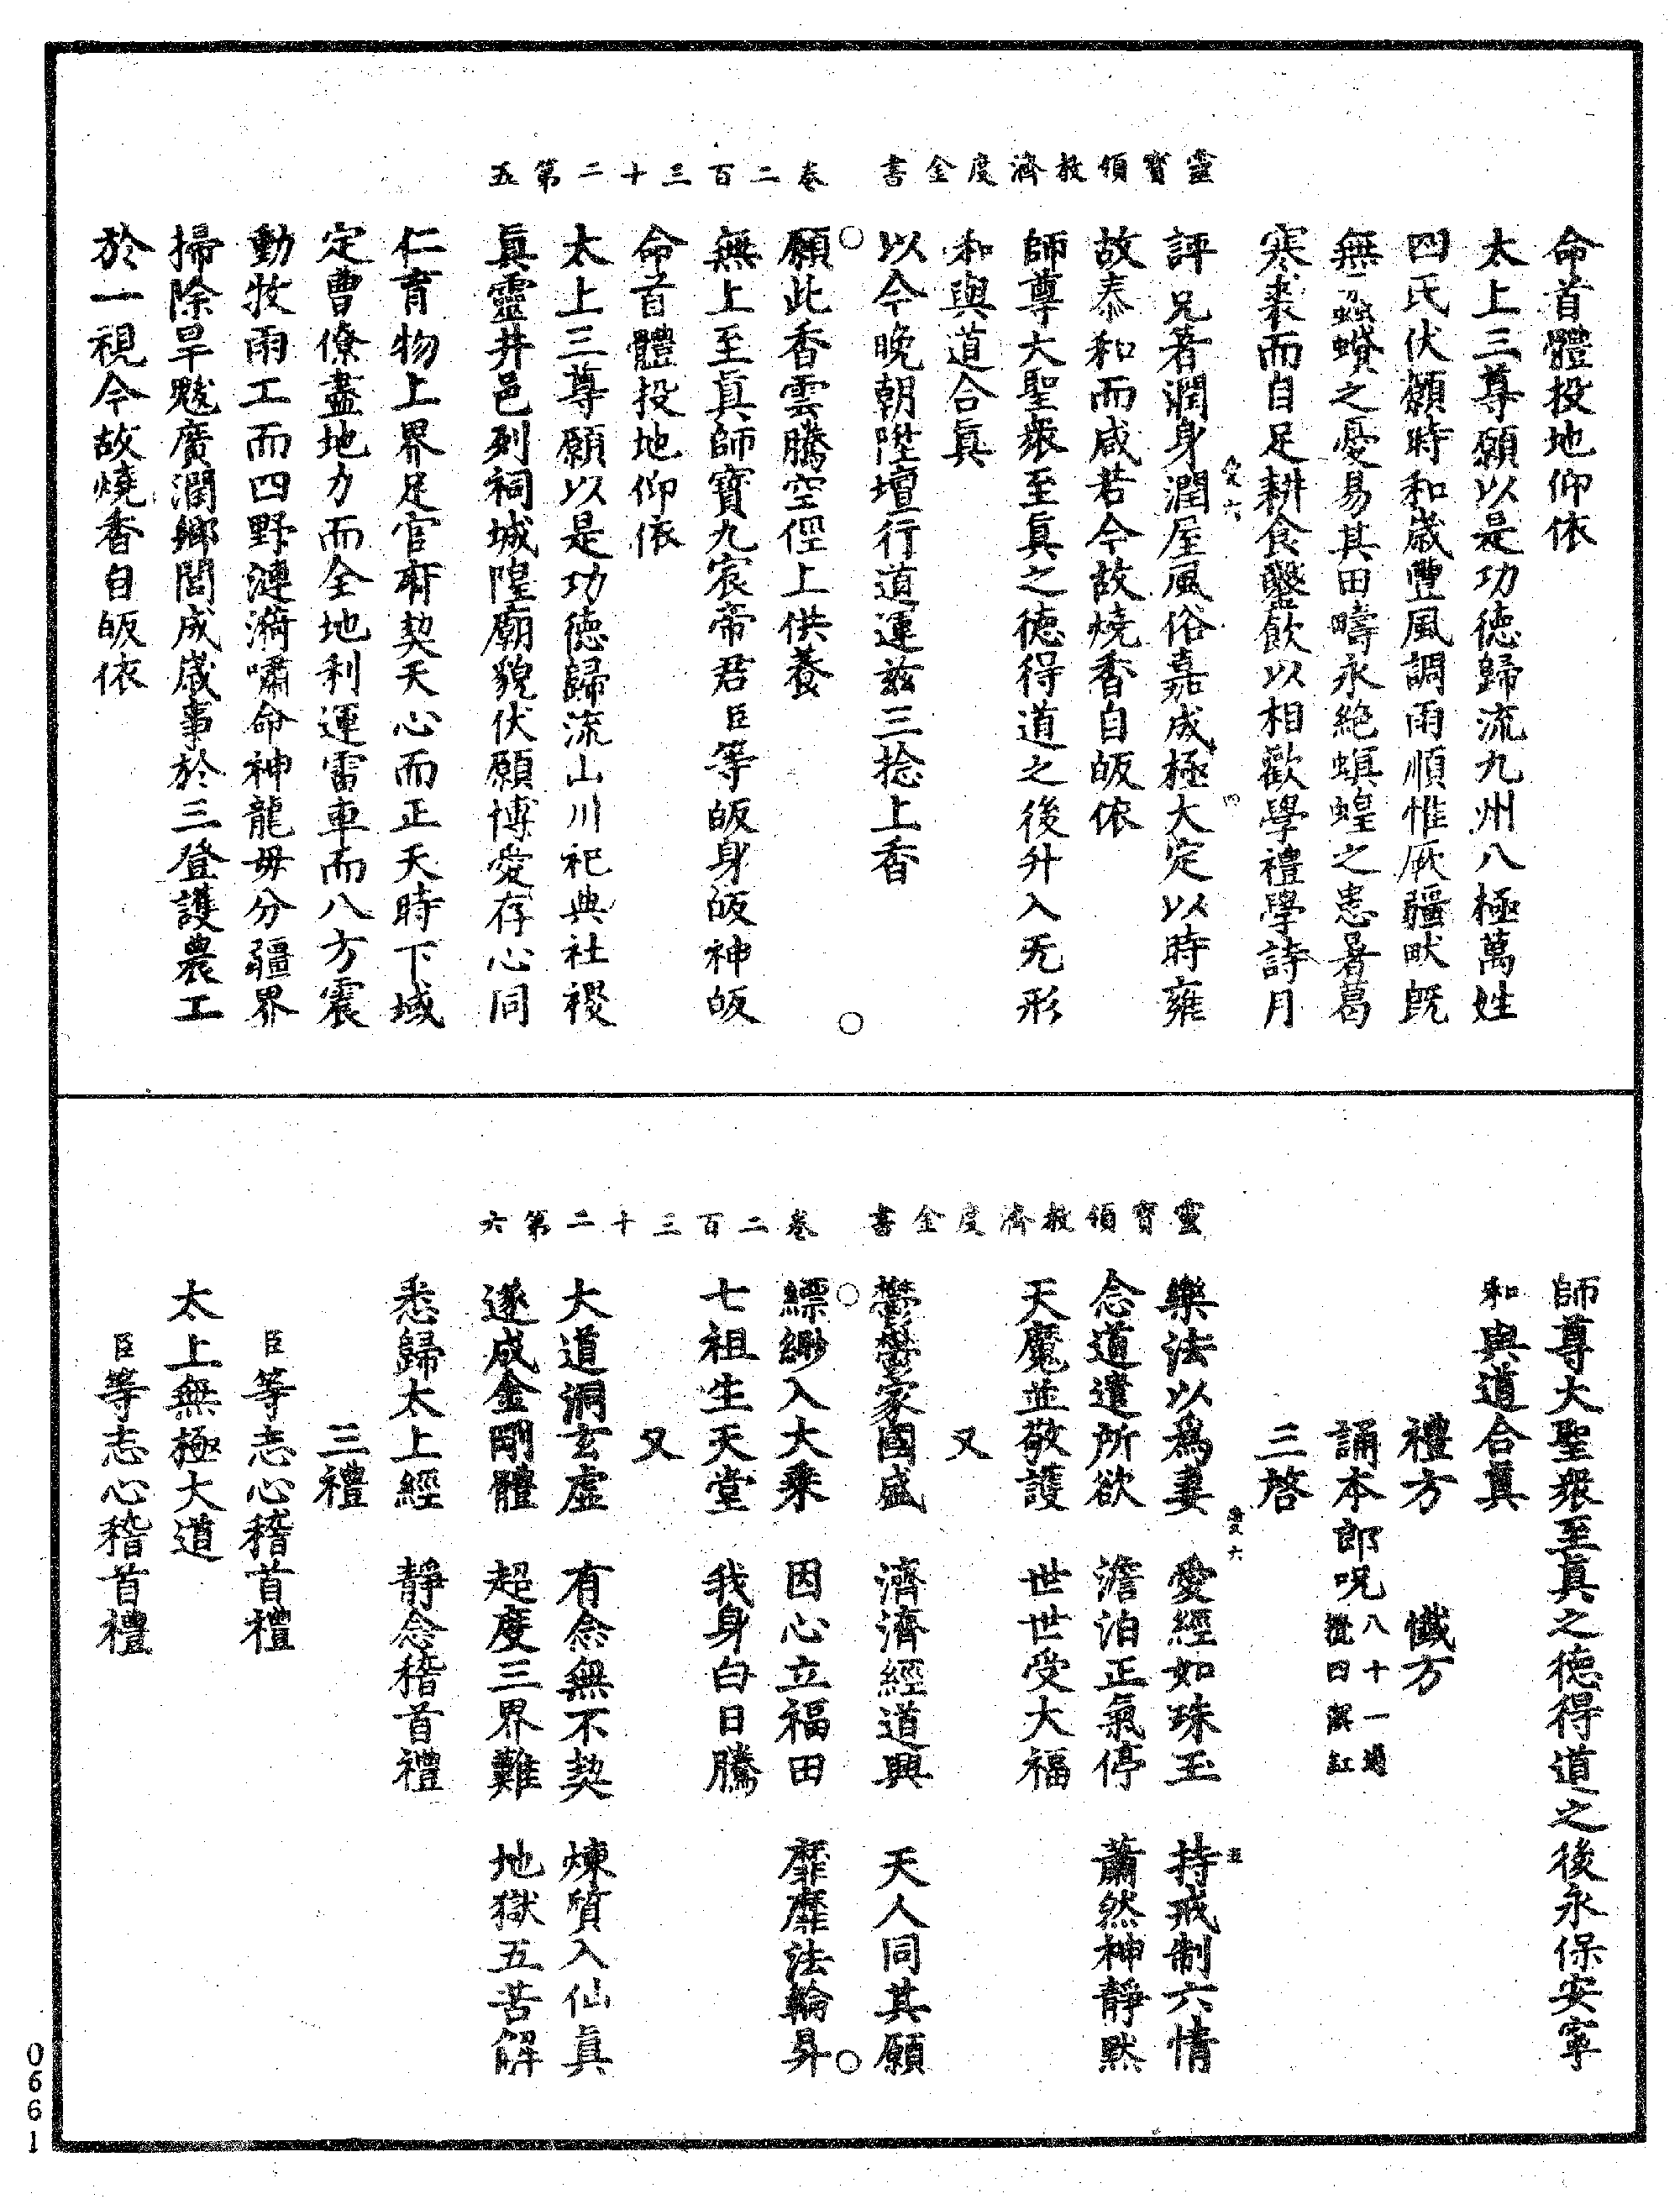 靈寶領教濟度金書 卷二百三十二第五
命首體投地仰依
太上三尊願以是功德歸流九州八極萬姓
四民伏願時和歲豐風調雨順惟厥疆畎既
無蟊蠈之憂易其田疇永絶螟蝗之患暑葛
寒裘而自足耕食鑿飲以相歡學禮學詩月
評兄著潤身潤屋風俗嘉成極大定以時雍
故泰和而咸若今故燒香自皈依
師尊大聖衆至真之德得道之後升入无形
和與道合眞
以今晚朝陞壇行道運兹三捻上香
願此香雲騰空徑上供養
無上至眞師寶九宸帝君臣等皈身皈神皈
命首體投地仰依
太上三尊願以是功德歸流山川祀典社稷
眞靈井邑列祠城隍廟貌伏願博愛存心同
仁育物上界足官府契天心而正天時下域
定曹僚盡地力而全地利運雷車而八方震
動牧雨工而四野漣漪嘯命神龍毋分疆界
掃除旱魃廣潤鄉閭成歲事於三登護農工
於一視今故燒香自皈依
靈寶領教濟度金書 卷二百三十二第六
師尊大聖衆至真之德得道之後永保安寧
和與道合眞
禮方 懺方
誦本郎呪八十一遍
三啓
樂法以爲妻 愛經如珠玉 持戒制六情
念道遣所欲 澹泊正氣停 蕭然神靜默
天魔並敬護 世世受大福
又
鬱鬱家國盛 濟濟經道興 天人同其願
縹緲入大乘 因心立福田 靡靡法輪昇
七祖生天堂 我身白日騰
又
大道洞玄虛 有念無不契 煉質入仙眞
遂成金剛體 超度三界難 地獄五苦解
悉歸太上經 靜念稽首禮
三禮
臣等志心稽首禮
太上無極大道
臣等志心稽首禮
0661